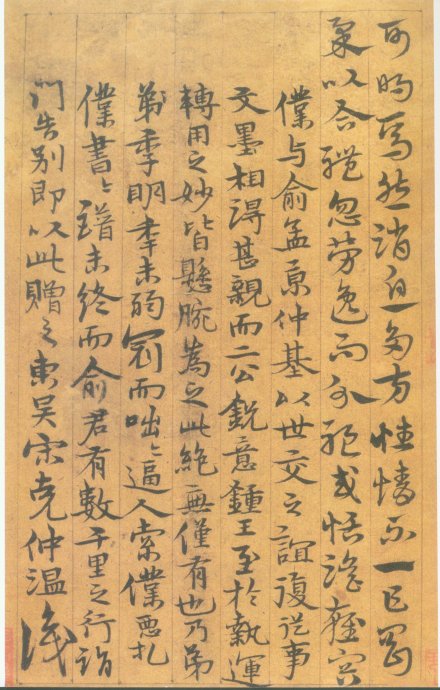 可明焉然消息多方性情不一乍剛
柔以合體忽勞逸而分驅或恬澹雍容
僕与俞孟京仲基以世交之誼復從事
文墨相得甚親而二公銳意鍾王至於執運
轉用之妙皆懸腕為之此絶無僅有也乃弟
季明年未弱冠而咄々逼人索僕惡札
僕書々譜未終而俞君有數千里之行詣
門告别即以此贈之東吳宋克仲温識